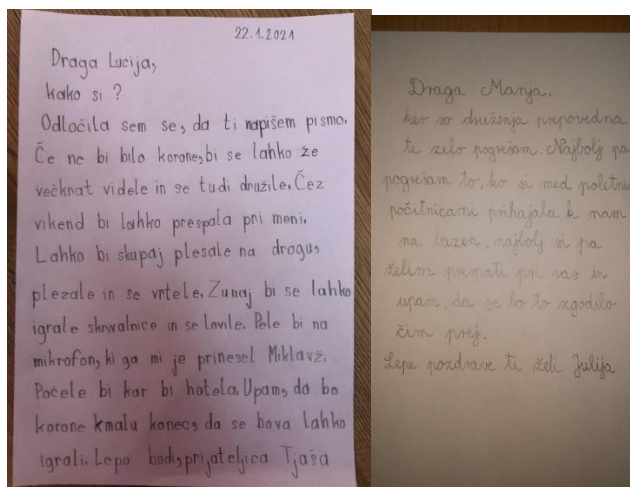 22.1.2021
Draga Lucija,
kako si ?
Odločila sem se, da ti napišem pismo.
Če ne bi bilo korone, bi se lahko že
večkrat videle in se tudi družile. Čez
vikend bi lahko prespala pri meni.
Lahko bi skupaj plesale na drogu,
plezale in se vrtele. Zunaj bi se lahko
igrale skrivalnice in se lovile. Pele bi na
mikrofon, ki ga mi je prinesel Miklavž.
Počele bi kar bi hotela. Upam, da bo
korone kmalu konec, da se bova lahko
igrali. Lepo bodi, prijateljica Tjaša
Draga Manja,
ker so druženja prepovedna
te zelo pogrešam. Najbolj pa
pogrešam to, ko si med poletni
počitnicami prihajala k nam
na bazen, najbolj si pa
želim prespati pri vas in
upam, da se bo to zgodilo
čim prej.
Lepe pozdrave ti želi Julija